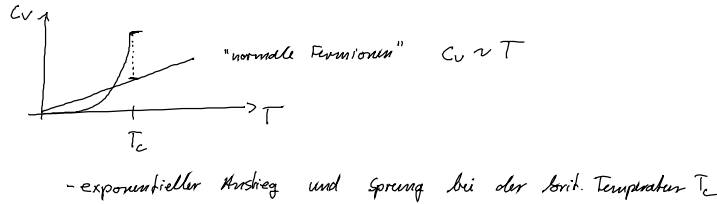 Cv
"normale Fermionen" Cv ~ T
T
Tc
- exponentieller Anstieg und Sprung bei der krit. Temperatur Tc